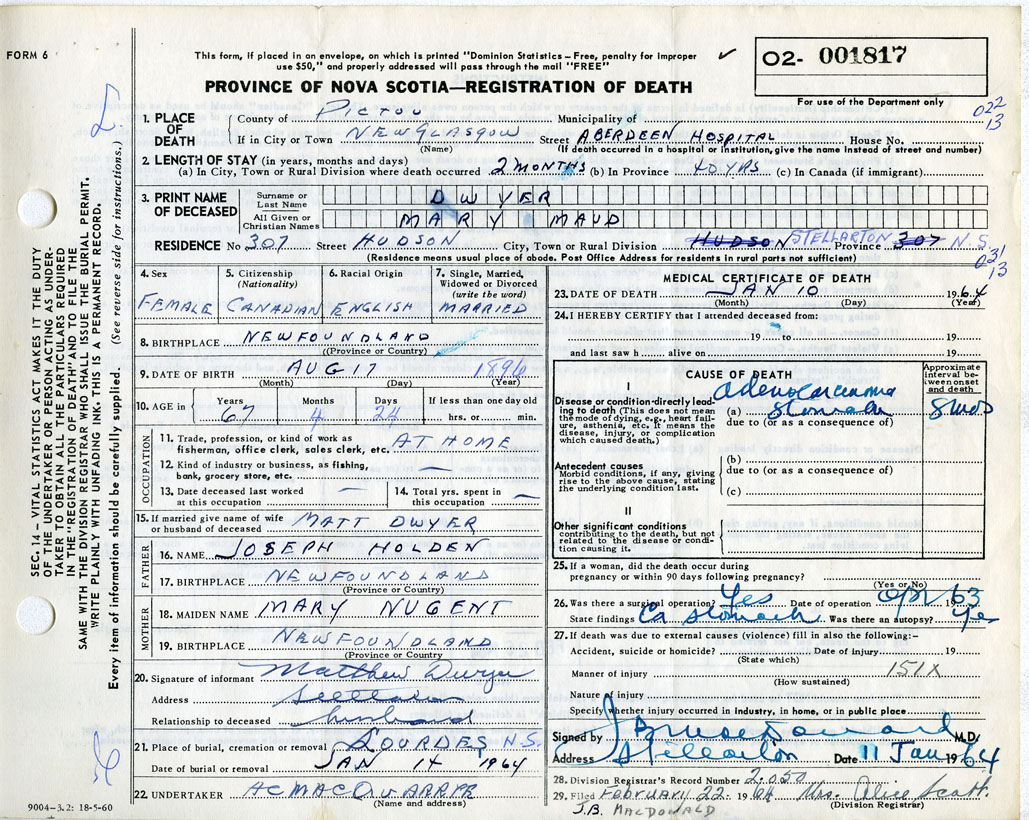 FORM 6
This form, if placed in an envelope, on which is printed "Dominion Statistics – Free, penalty for improper
use $50," and properly addressed will pass through the mail "FREE"
✓
O2- 001817
For use of the Department only
PROVINCE OF NOVA SCOTIA—REGISTRATION OF DEATH
022
13
1. PLACE OF DEATH
County of PICTOU Municipality of
If in City or Town NEW GLASGOW Street ABERDEEN HOSPITAL House No.
(Name) (If death occurred in a hospital or institution, give the name instead of street and number)
2. LENGTH OF STAY (in years, months and days)
(a) In City, Town or Rural Division where death occurred 2 MONTHS (b) In Province 40 YRS (c) In Canada (if immigrant)
3. PRINT NAME OF DECEASED
Surname or Last Name DWYER
All Given or Christian Names MARY MAUD
RESIDENCE No 307 Street HUDSON City, Town or Rural Division HUDSON STELLARTON Province 307 N.S.
(Residence means usual place of abode. Post Office Address for residents in rural parts not sufficient)
031
13
4. Sex
FEMALE
5. Citizenship (Nationality)
CANADIAN
6. Racial Origin
ENGLISH
7. Single, Married, Widowed or Divorced (write the word)
MARRIED
8. BIRTHPLACE NEWFOUNDLAND
(Province or Country)
9. DATE OF BIRTH AUG 17 1896
(Month) (Day) (Year)
10. AGE in Years Months Days If less than one day old
67 4 24 hrs. or min.
OCCUPATION
11. Trade, profession, or kind of work as
fisherman, office clerk, sales clerk, etc. AT HOME
12. Kind of industry or business, as fishing,
bank, grocery store, etc. —
13. Date deceased last worked
at this occupation —
14. Total yrs. spent in
this occupation —
15. If married give name of wife
or husband of deceased MATT DWYER
FATHER
16. NAME JOSEPH HOLDEN
17. BIRTHPLACE NEWFOUNDLAND
(Province or Country)
MOTHER
18. MAIDEN NAME MARY NUGENT
19. BIRTHPLACE NEWFOUNDLAND
(Province or Country)
20. Signature of informant Matthew Dwyer
Address Stellarton
Relationship to deceased husband
21. Place of burial, cremation or removal LOURDES N.S.
Date of burial or removal JAN 14 1964
22. UNDERTAKER
(Name and address)
MEDICAL CERTIFICATE OF DEATH
23. DATE OF DEATH JAN 10 1964
(Month) (Day) (Year)
24. I HEREBY CERTIFY that I attended deceased from:
19 to 19
and last saw h alive on 19
CAUSE OF DEATH
Approximate interval between onset and death
I
Disease or condition directly leading to death (This does not mean the mode of dying, e.g., heart failure, asthenia, etc. It means the disease, injury, or complication which caused death.)
(a) adenocarcinoma
stomach 8 mos
due to (or as a consequence of)
Antecedent causes
Morbid conditions, if any, giving rise to the above cause, stating the underlying condition last.
(b)
due to (or as a consequence of)
(c)
II
Other significant conditions
contributing to the death, but not related to the disease or condition causing it.
25. If a woman, did the death occur during
pregnancy or within 90 days following pregnancy?
(Yes or No)
26. Was there a surgical operation? Yes Date of operation Apr 63
State findings Ca stomach Was there an autopsy?
27. If death was due to external causes (violence) fill in also the following:–
Accident, suicide or homicide? Date of injury 19
(State which)
Manner of injury 151X
(How sustained)
Nature of injury
Specify whether injury occurred in industry, in home, or in public place
Signed by M.D.
Address Stellarton Date 11 Jan 1964
28. Division Registrar's Record Number 2.050
29. Filed FEBRUARY 22 1964 Mrs. Alice Scott.
(Division Registrar)
J.B. MACDONALD
9004–3.2: 18-5-60
SEC. 14 – VITAL STATISTICS ACT MAKES IT THE DUTY
OF THE UNDERTAKER OR PERSON ACTING AS UNDER-
TAKER TO OBTAIN ALL THE PARTICULARS REQUIRED
IN THE "REGISTRATION OF DEATH" AND TO FILE THE
SAME WITH THE DIVISION REGISTRAR WHO SHALL ISSUE THE BURIAL PERMIT.
WRITE PLAINLY WITH UNFADING INK. THIS IS A PERMANENT RECORD.
Every item of information should be carefully supplied. (See reverse side for instructions.)